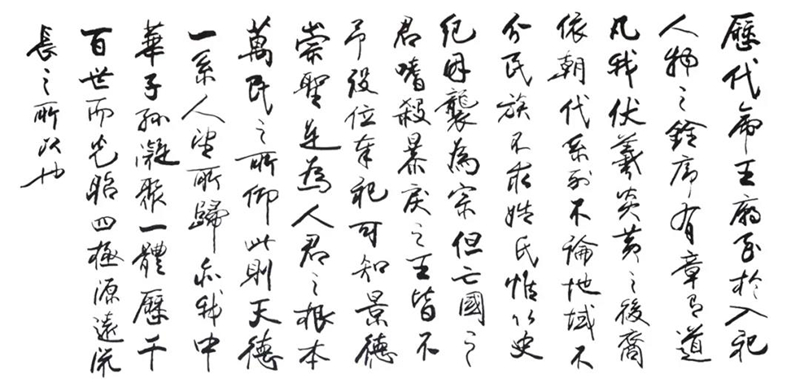 歷代帝王廟至於入祀
人物之銓序有章有道
凡我伏羲炎黄之後裔
依朝代系列不論地域不
分民族不求姓氏惟以史
紀因襲為宗但亡國之
君嗜殺暴戾之王皆不
予設位奉祀可知景德
崇聖是為人君之根本
萬民之所仰此則天德
一系人望所歸亦我中
華子孫凝聚一體歷千
百世而光昭四極源遠流
長之所以也